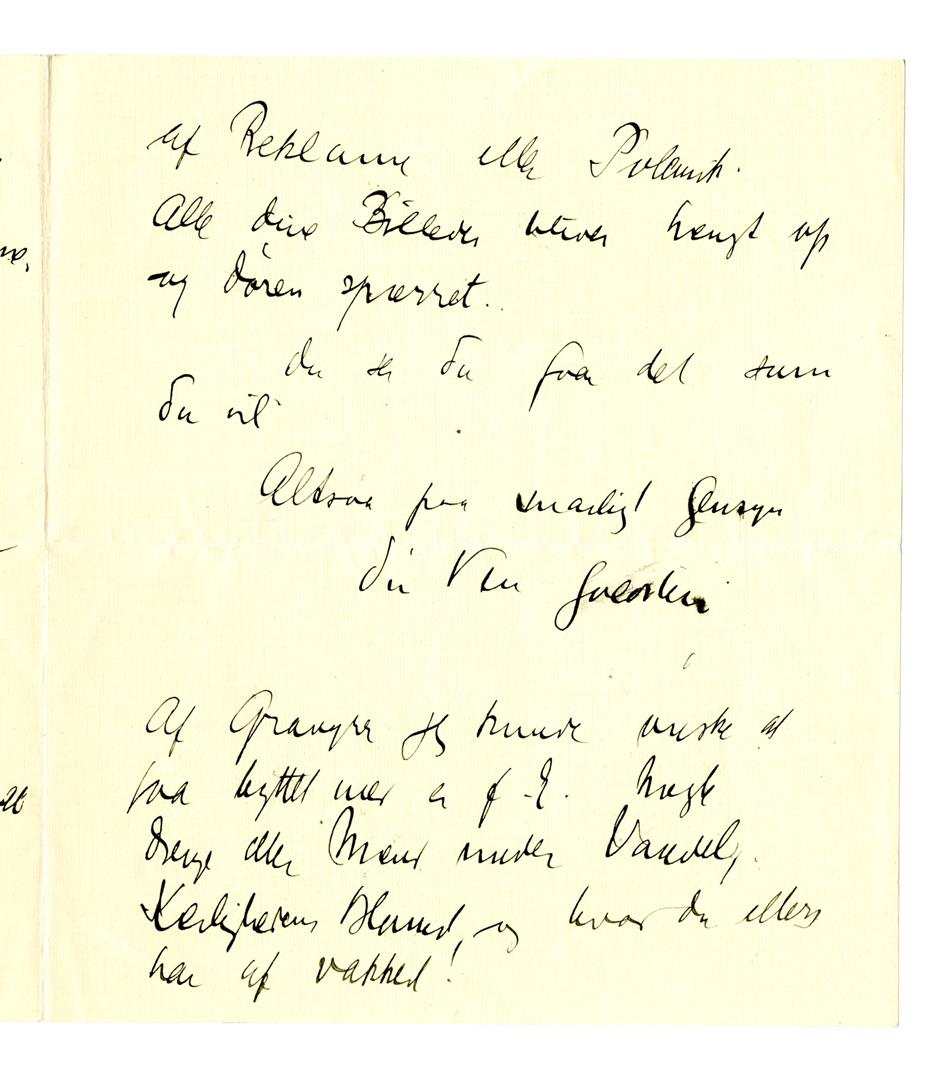 af Reklame eller Polemik.
Alle dine Billeder bliver hængt op
og døren spærret.
Du ser du faar det som
du vil
Altsaa paa snarligt Gensyn
din Ven
Af Gravyrer jeg kunde ønske at
faa byttet mer er f. E.
drenge eller Mænd under
Kærlighedens Blomst, og hvad du ellers
har af vakkert!